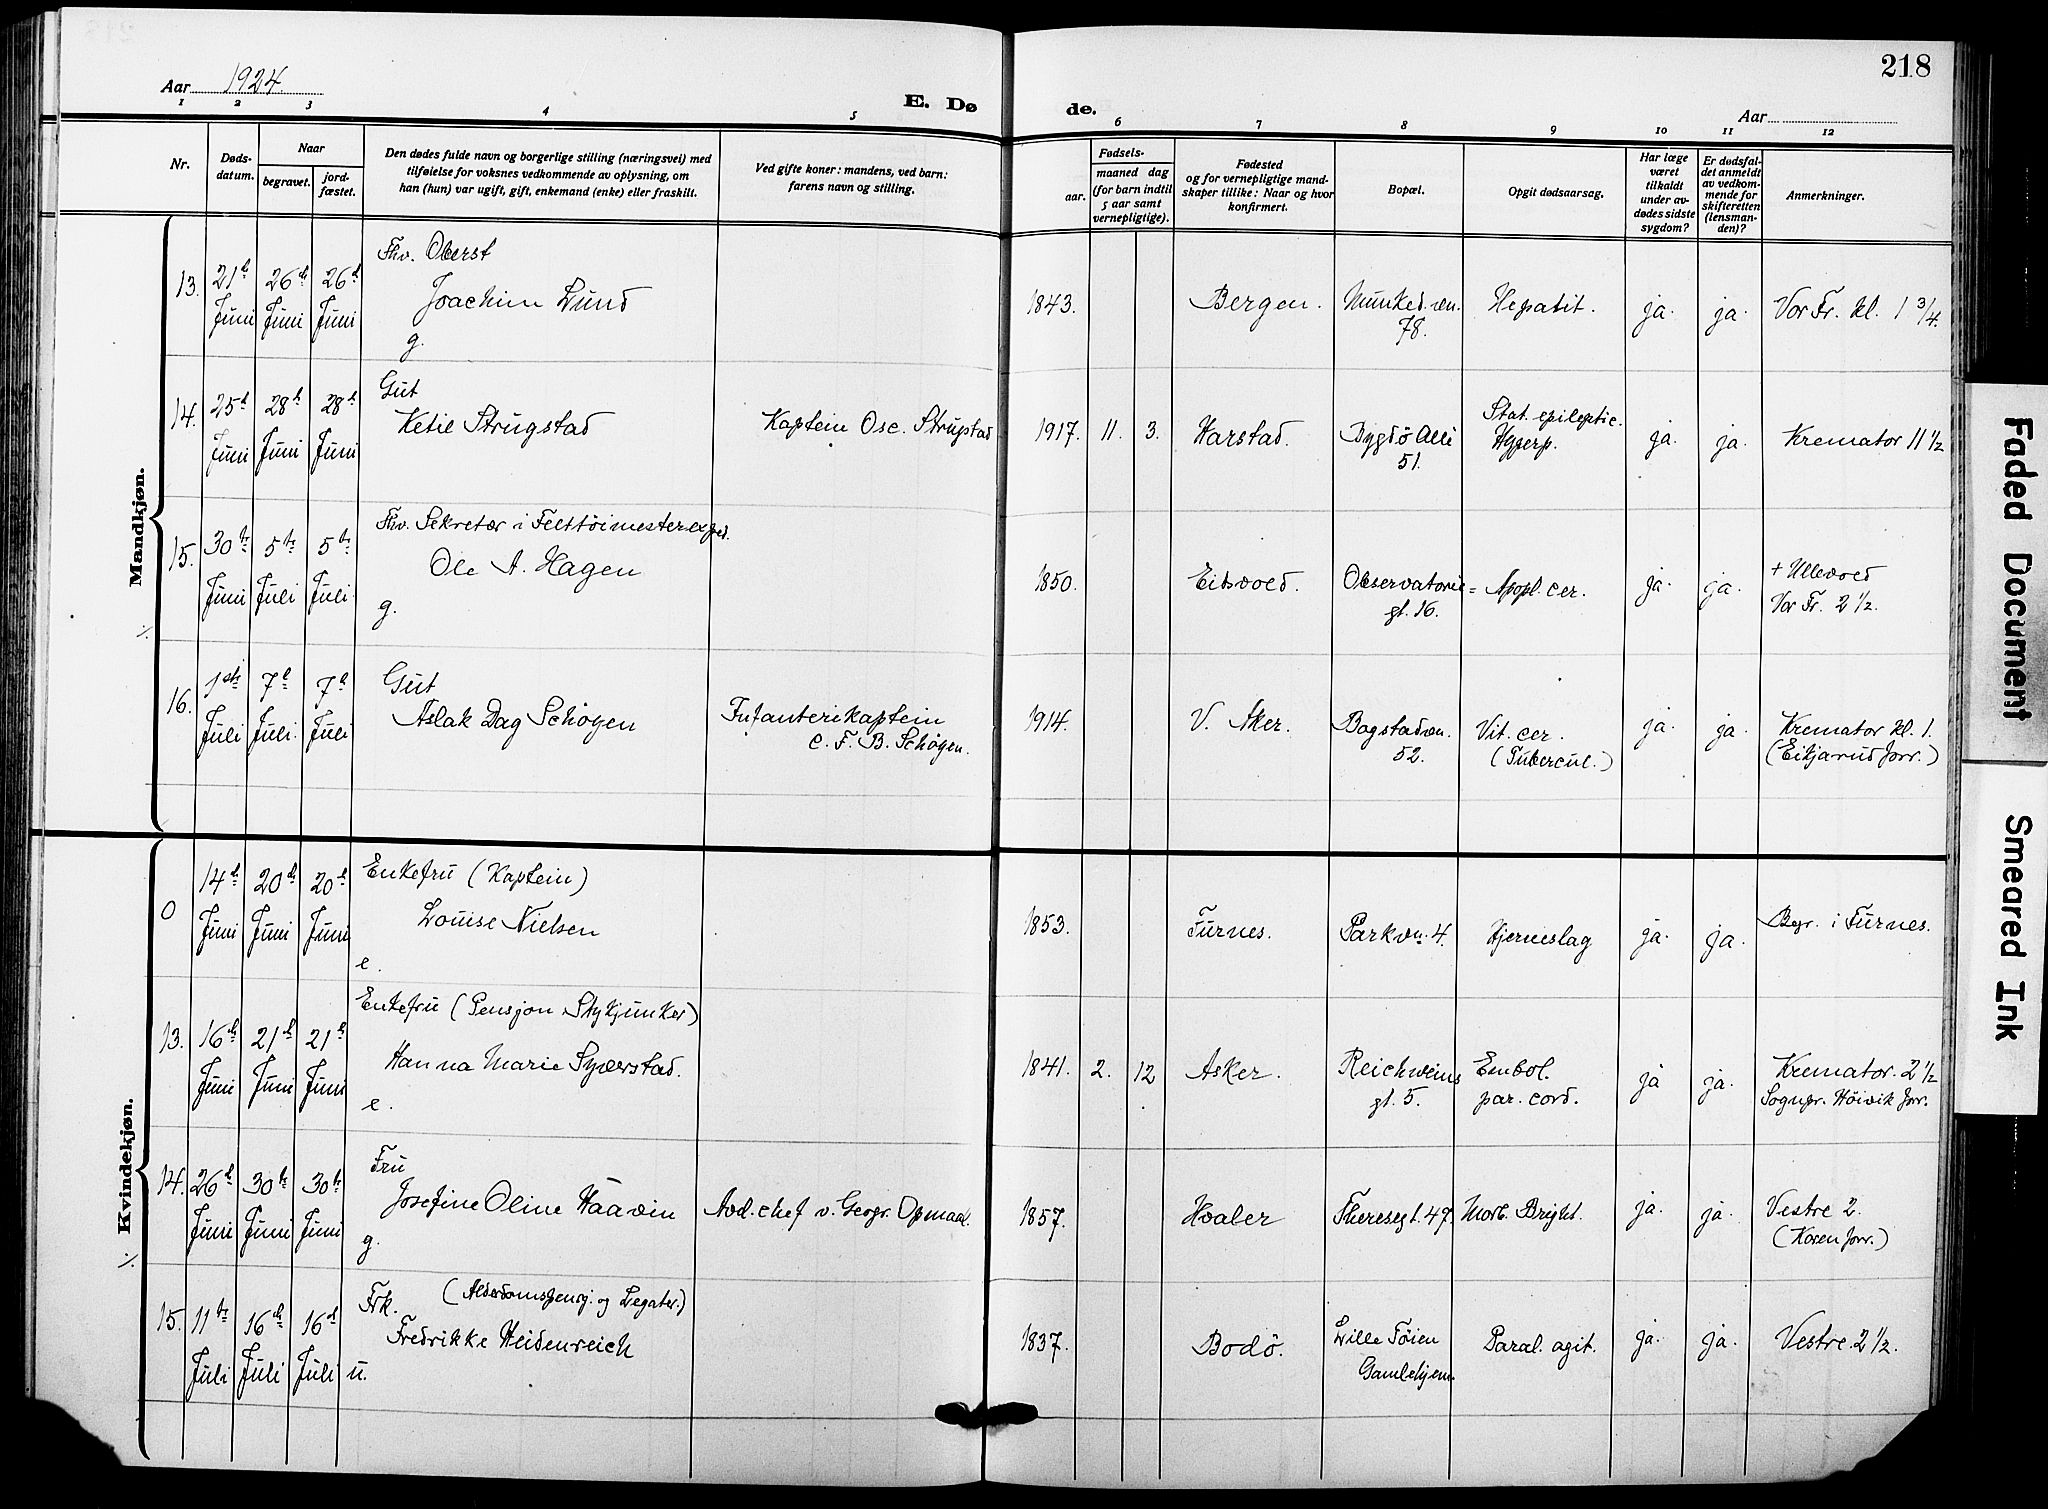 218
Aar 1924.
E. Dø
de.
Aar
1 2 3 4 5 6 7 8 9 10 11 12
Nr.
Døds-
datum.
Naar
begravet.
jord-
fæstet.
Den dødes fulde navn og borgerlige stilling (næringsvei) med
tilføielse for voksnes vedkommende av oplysning, om
han (hun) var ugift, gift, enkemand (enke) eller fraskilt.
Ved gifte koner: mandens, ved barn:
farens navn og stilling.
Fødsels-
aar.
maaned dag
(for barn indtil
5 aar samt
vernepligtige).
Fødested
og for vernepligtige mand-
skaper tillike: Naar og hvor
konfirmert.
Bopæl.
Opgit dødsaarsag.
Har læge
været
tilkaldt
under av-
dødes sidste
sygdom?
Er dødsfal-
det anmeldt
av vedkom-
mende for
skifteretten
(lensman-
den)?
Anmerkninger.
Mandkjøn.
13. 21d Juni 26de Juni 26d Juni
Fhv. Oberst
Joachim Lund
g.
1843. Bergen. Munkedvn. 78. Hepatit. ja. ja. Vor Fr. kl. 1 3/4.
14. 25d Juni 28d Juni 28d Juni
Gut
Ketil Strugstad
Kaptein Osc. Strugstad
1917. 11. 3. Harstad. Bygdö Alle 51. Stat. epileptic. Hyperp. ja. ja. Kremator 11 1/2
15. 30te Juni 5te Juli 5te Juli
Fhv. Sekretær i Felttöimesterexped.
Ole A. Hagen
g.
1850. Eidsvold. Observatorie= gt. 16. Apopl. cer. ja. ja. + Ullevold
Vor Fr. 2 1/2.
16. 1ste Juli 7d Juli 7d Juli
Gut
Aslak Dag Schöyen
Infanterikaptein
C. F. B. Schöyen.
1914. V. Aker. Bogstadvn. 52. Vit. cer. (Tubercul.) ja. ja. Kremator kl. 1.
(Eikjarud forr.)
Kvindekjøn.
0 14d Juni 20de Juni 20d Juni
Enkefru (Kaptein)
Louise Nielsen
e.
1853. Furnes. Parkvn. 4. Hjerneslag ja. ja. Begr. i Furnes.
13. 16de Juni 21d Juni 21d Juni
Enkefru (Pensjon Stykjunker)
Hanna Marie Syverstad.
e.
1841. 2. 12 Asker. Reichweins gt. 5. Embol. par. cord. ja ja. Kremator. 2 1/2
Sognepr. Höivik forr.
14. 26d Juni 30te Juni 30te Juni
Fru
Josefine Oline Haavin
g.
Avd. chef v. Geogr. Opmaal.
1857. Hvaler Theresegt. 47. Morb. Bright. ja. ja. Vestre 2.
(Koren forr.)
15. 11te Juli 16d Juli 16d Juli
Frk. (Alderdomspensj. og Legater.)
Fredrikke Heidenreich
u.
1837. Bodö. Lille Töien Gamlehjem. Paral. agit. ja. ja. Vestre 2 1/2.
Faded Document
Smeared Ink